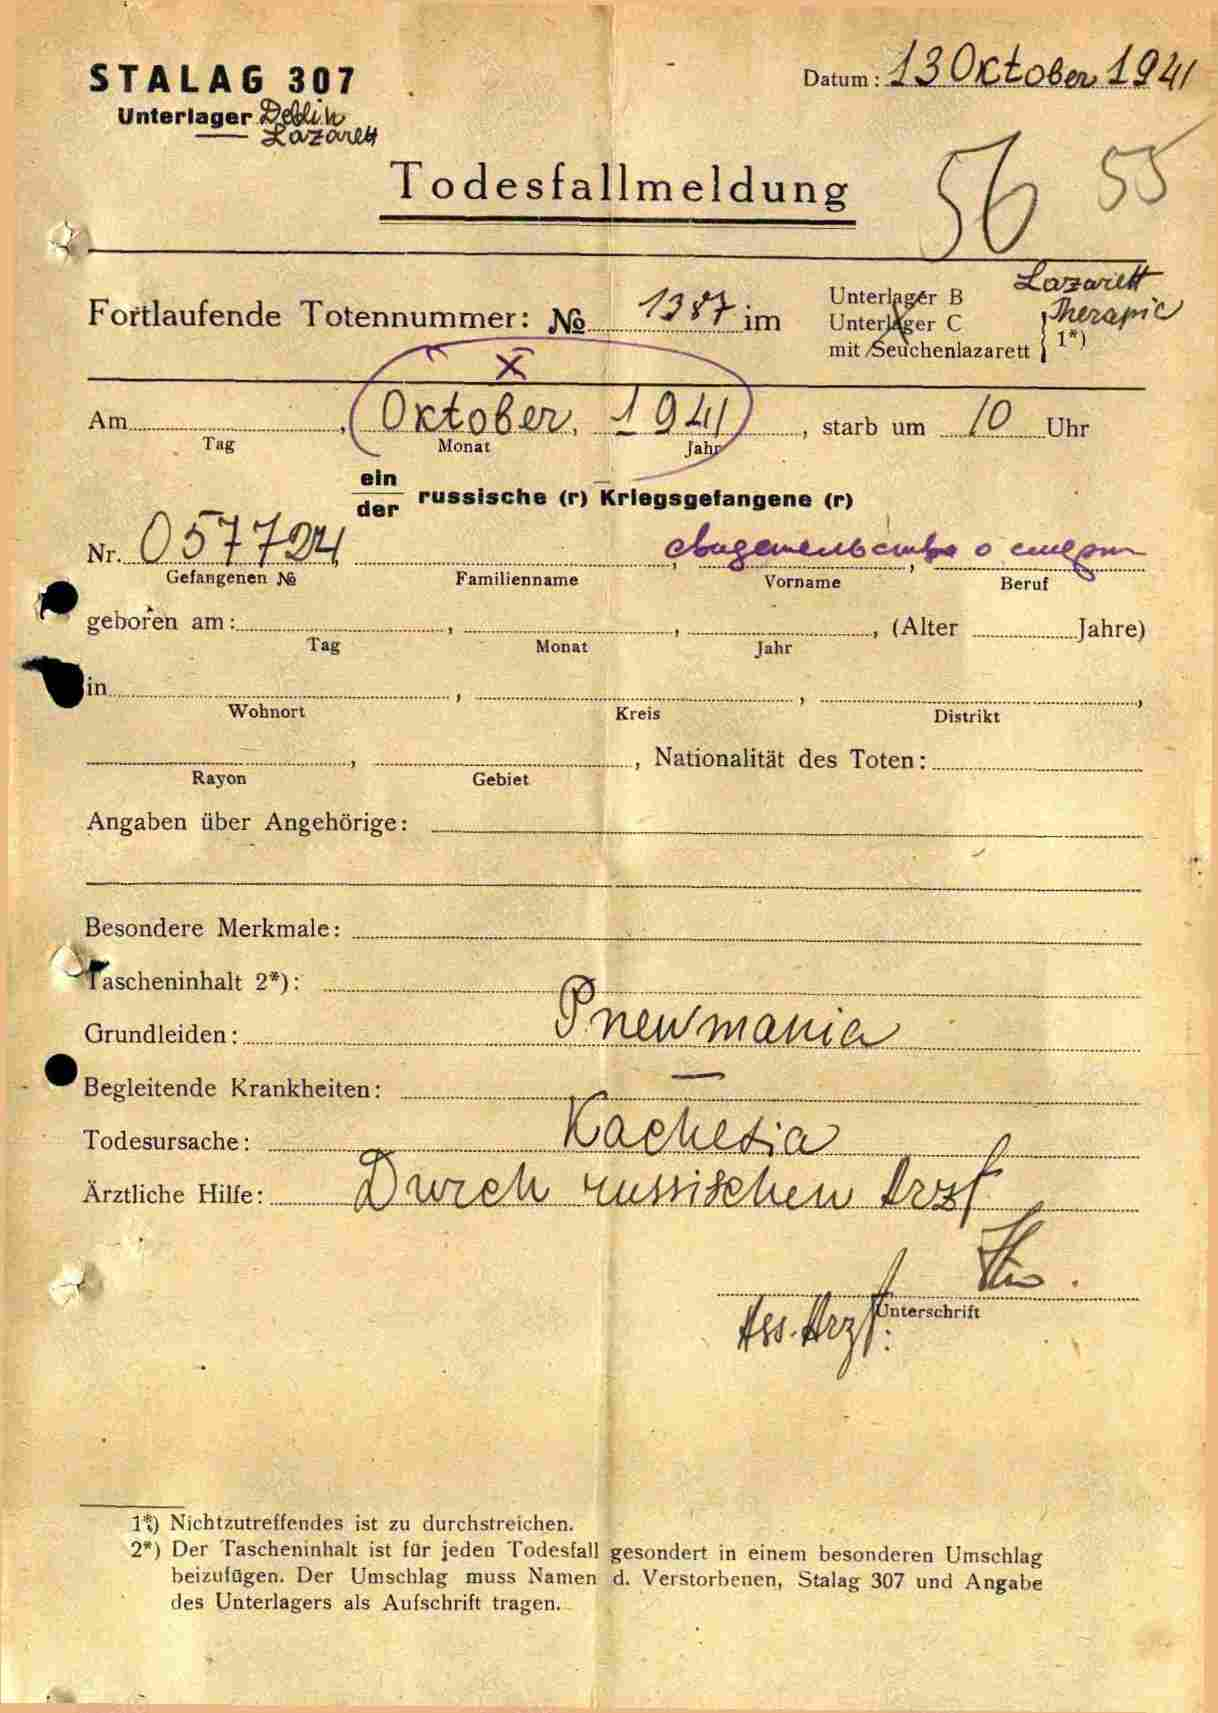 STALAG 307
Datum: 13 Oktober 1941
Unterlager Deblin
Lazarett
Todesfallmeldung
56 55
Fortlaufende Totennummer: № 1387 im
Unterlager B
Unterlager C
mit Seuchenlazarett } 1*)
Lazarett
Therapie
X
Am , Oktober, 1941, starb um 10 Uhr
Tag Monat Jahr
ein
der russische (r) Kriegsgefangene (r)
Nr. 057724, , свидетельство о смерти
Gefangenen № Familienname Vorname Beruf
geboren am: , , , (Alter Jahre)
Tag Monat Jahr
in , , ,
Wohnort Kreis Distrikt
, , Nationalität des Toten:
Rayon Gebiet
Angaben über Angehörige:
Besondere Merkmale:
Tascheninhalt 2*):
Grundleiden: Pnewmania
Begleitende Krankheiten: —
Todesursache: Kachexia
Ärztliche Hilfe: Durch russischen Arzt
Unterschrift
Ass. Arzt:
1*) Nichtzutreffendes ist zu durchstreichen.
2*) Der Tascheninhalt ist für jeden Todesfall gesondert in einem besonderen Umschlag
beizufügen. Der Umschlag muss Namen d. Verstorbenen, Stalag 307 und Angabe
des Unterlagers als Aufschrift tragen.